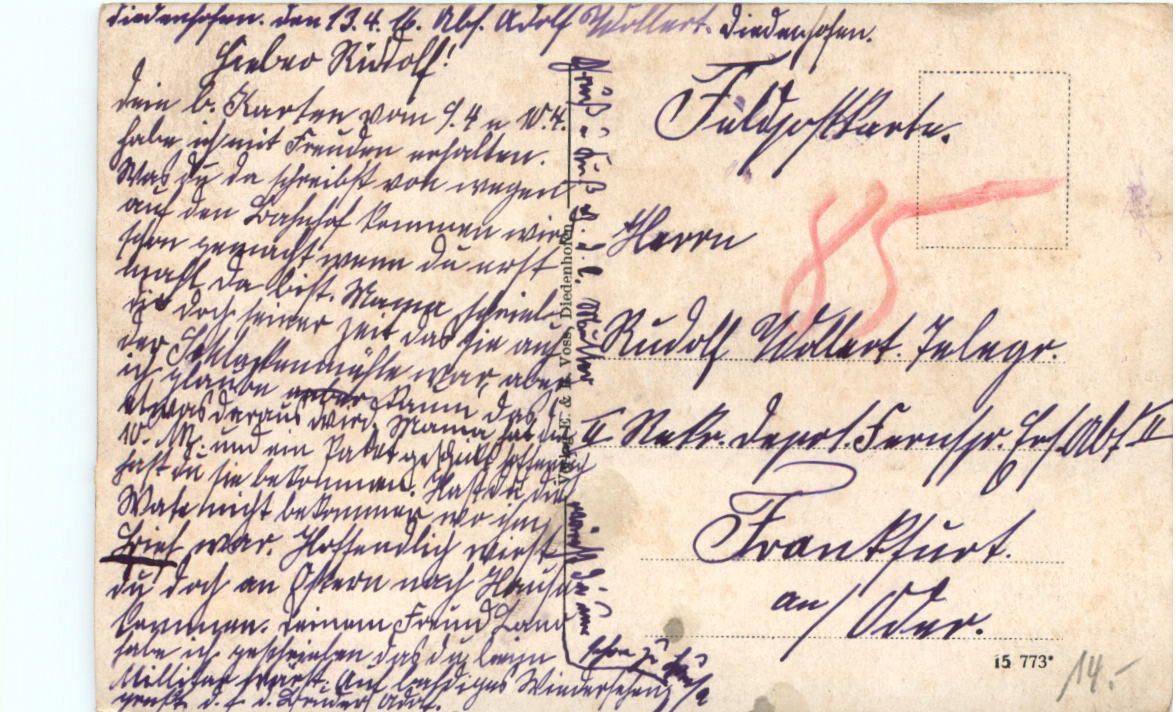 Diedenhofen. den 13.4.16. Abs. Adolf Wollert. Diedenhofen.
Lieber Rudolf!
Dein l. Karten vom 9.4 u 10.4.
habe ich mit Freuden erhalten.
Was du da schreibst von wegen
auf den Bahnhof kommen wird
schon gemacht wenn du erst
mahl da bist. Mama schrieb
dir doch seiner Zeit das sie auf
der Schlackenmühle war, aber
ich glaube kaum das
etwas daraus wird. Mama hat dir
10. M. und ein Paket geschickt hoffentlich
hast du sie bekommen. Hast du die
Wate nicht bekommen wo im
Brief war. Hoffendlich wirst
du doch an Ostern nach Hause
kommen. Deinem Freund
habe ich geschrieben das du beim
Militär wärst. Auf baldiges Wiedersehen
grüßt d. l. d. Bruder Adolf.
Gruß u. Kuß a. d. l. Mutter
wärst du nur
schon zu Haus
Verlag E. & R. Voss, Diedenhofen
Feldpostkarte.
85
Herrn
Rudolf Wollert. Telegr.
II Rekr. Depot. Fernspr. Ers. Abt II
Frankfurt.
an/Oder.
15 773*
14.-